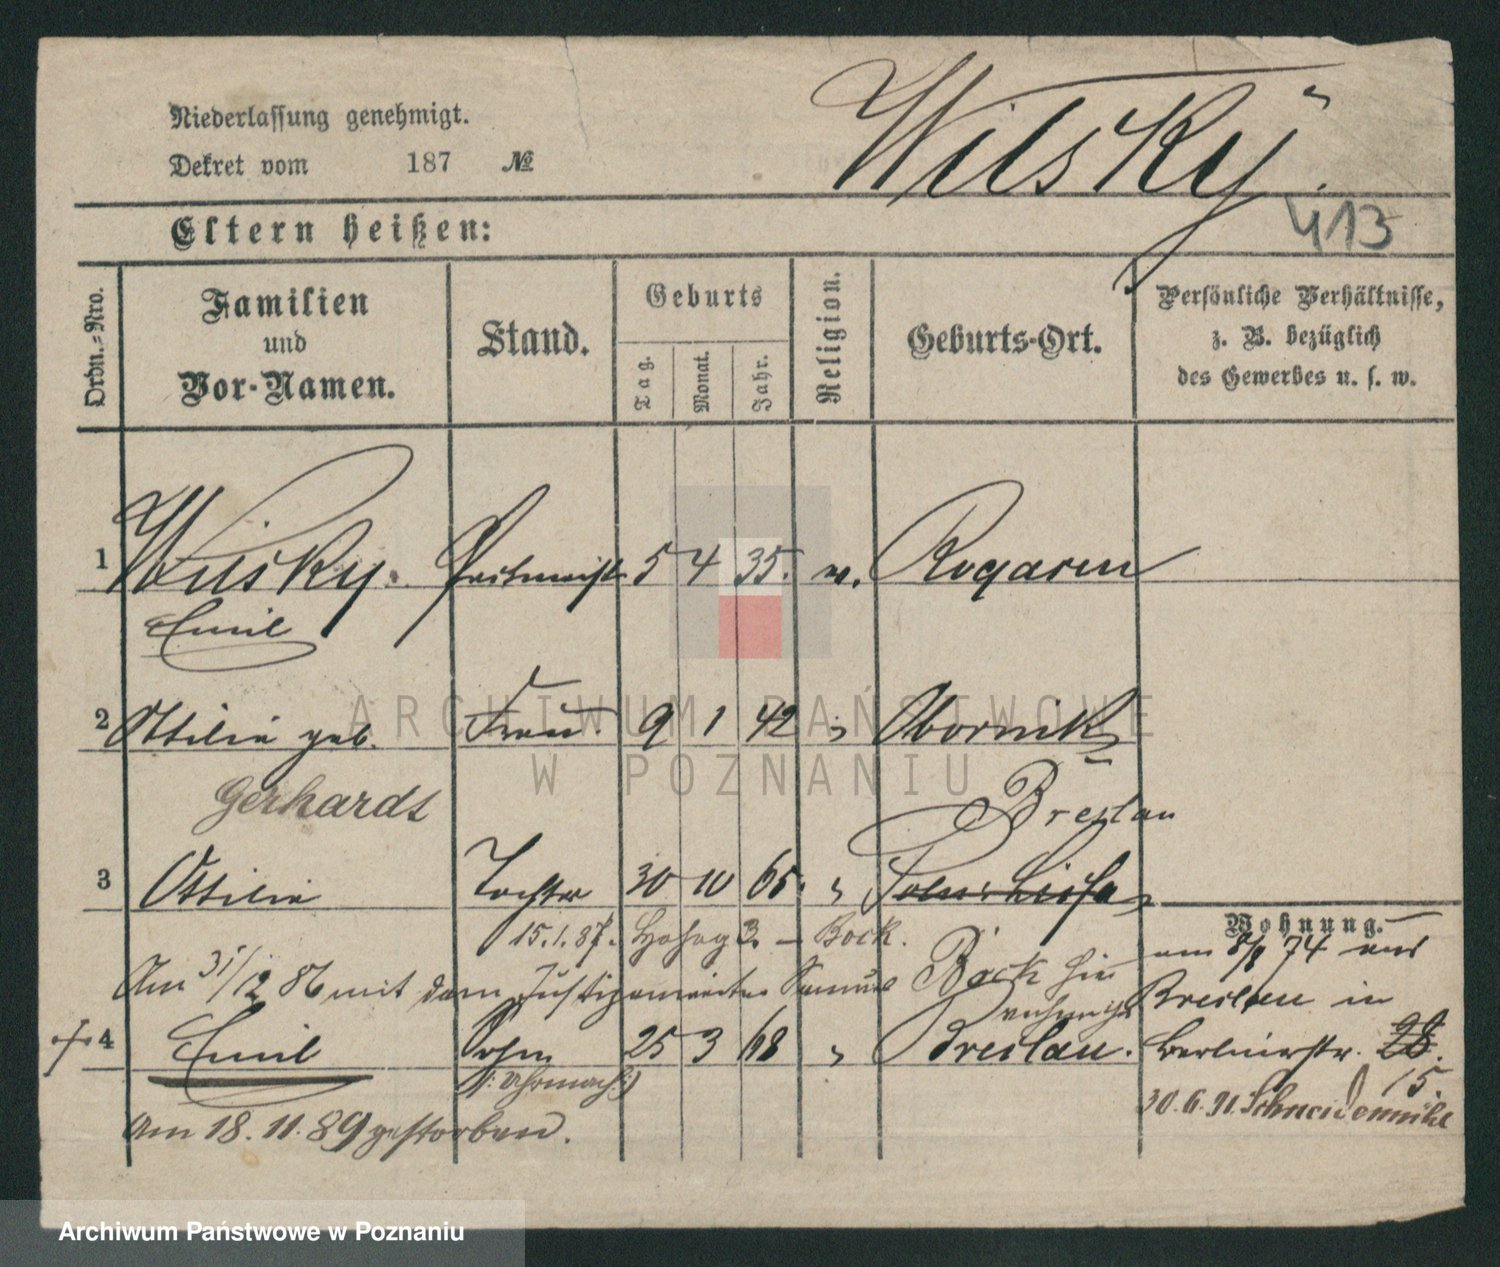 Niederlassung genehmigt.
Dekret vom 187 №
Wilsky.
413
Eltern heißen:
Ordn.-Nro.
Familien
und
Vor-Namen.
Stand.
Geburts
Tag.
Monat.
Jahr.
Religion.
Geburts-Ort.
Persönliche Verhältnisse,
z. B. bezüglich
des Gewerbes u. s. w.
1 Wilsky. 5 4 35.
Emil
2 Ottilie geb. Frau. 9 1 42 Obornik
Gerhardt Breslau
3 Ottilie Tochter 30 10 65.
Wohnung.
15.1.87. 3. – Bock.
Am 31/12 86 mit dem Samuel Bock
am 8/8 74 aus
Breslau in
4 Emil Sohn 25 3 68 Breslau. Berlinerstr. 28.
15.
(: Uhrmach :)
30.6.91. Schneidemühl
Am 18.11.89 gestorben.
ARCHIWUM PAŃSTWOWE
W POZNANIU
Archiwum Państwowe w Poznaniu